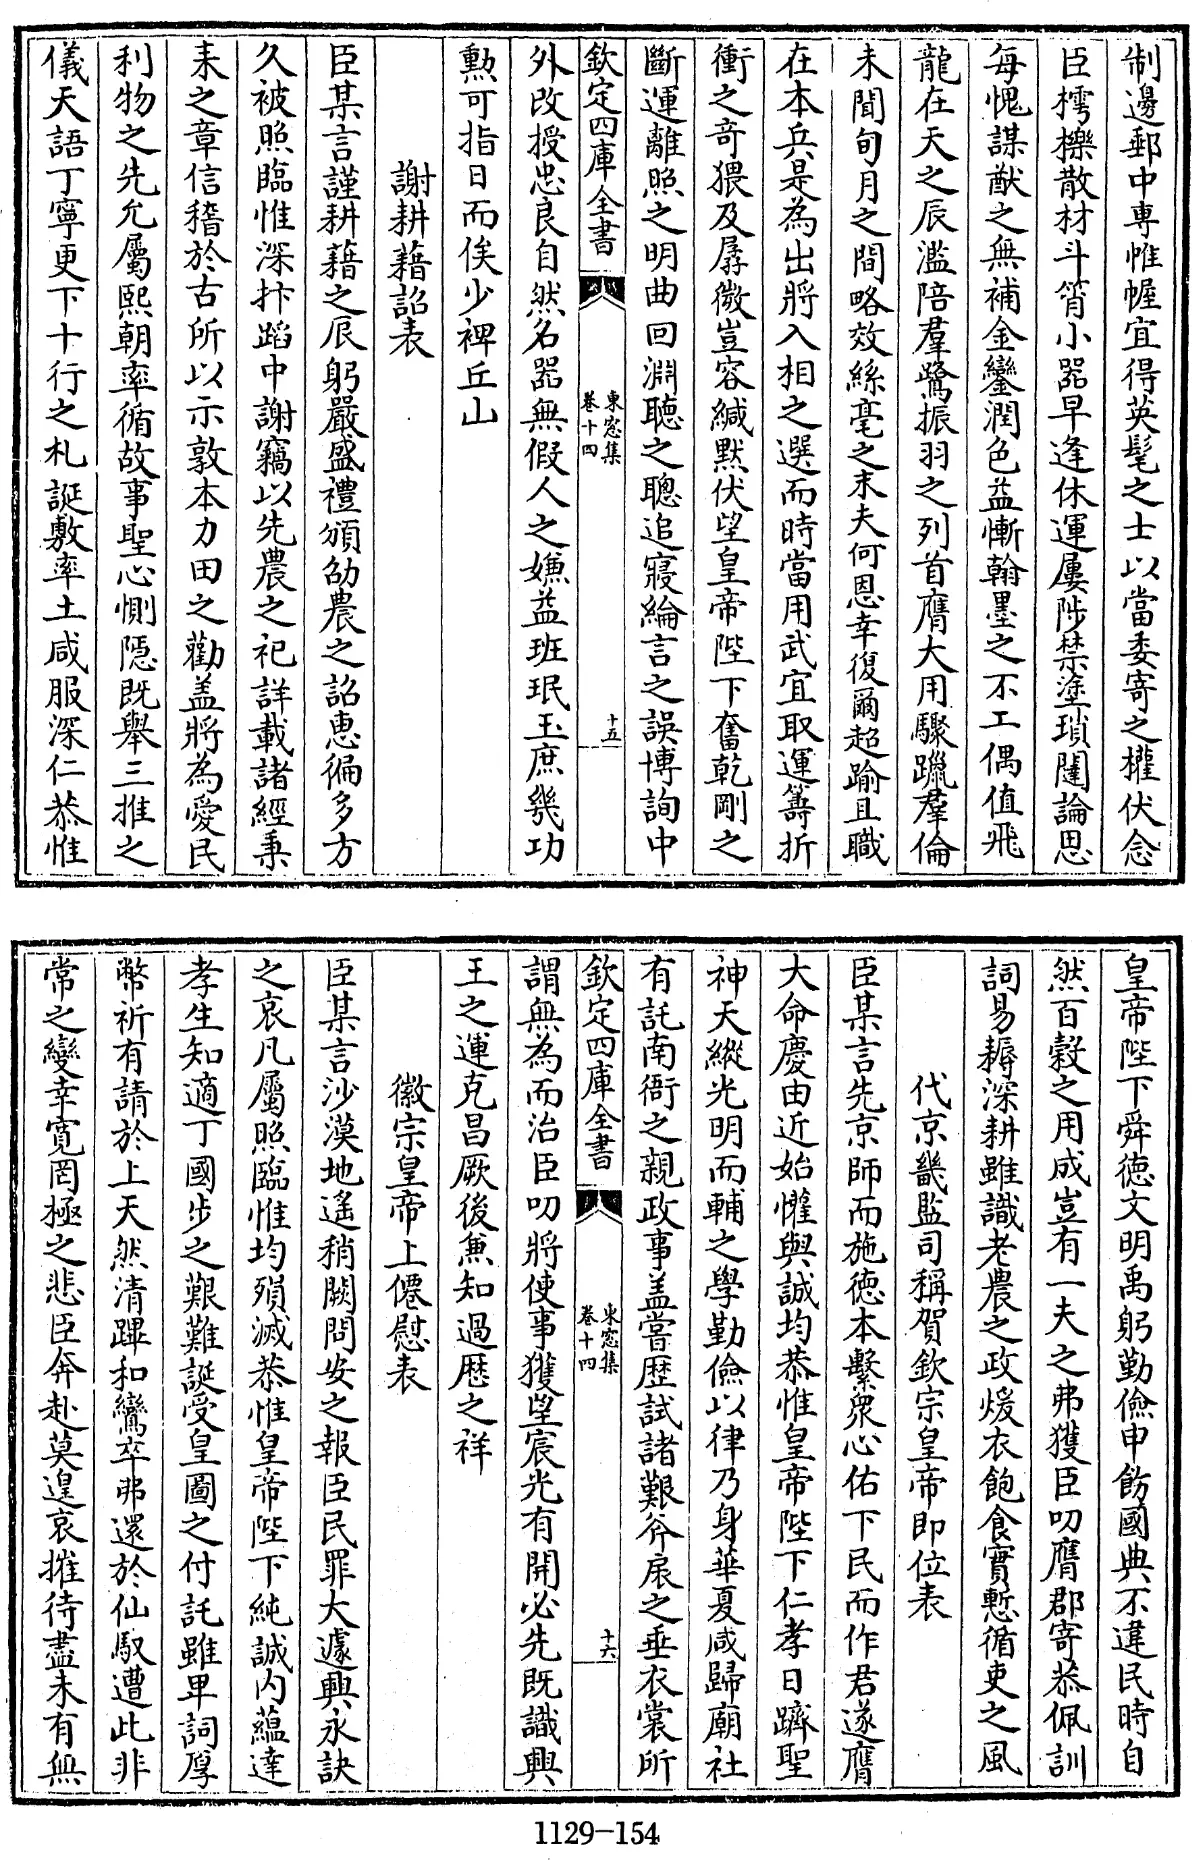 制邊郵中専帷幄宜得英髦之士以當委寄之權伏念
臣樗櫟散材斗筲小器早逢休運屢陟禁塗瑣闥論思
每愧謀猷之無補金鑾潤色益慚翰墨之不工偶值飛
龍在天之辰濫陪羣鷺振羽之列首膺大用驟躐羣倫
未聞旬月之間略效絲毫之末夫何恩幸復爾超踰且職
在本兵是為出將入相之選而時當用武宜取運籌折
衝之奇猥及孱微豈容緘默伏望皇帝陛下奮乾剛之
斷運離照之明曲回淵聽之聰追寢綸言之誤博詢中
欽定四庫全書
東窓集
卷十四
十五
外改授忠良自然名器無假人之嫌益班珉玉庶幾功
勲可指日而俟少裨丘山
謝耕藉詔表
臣某言謹耕藉之辰躬嚴盛禮頒劭農之詔惠徧多方
久被照臨惟深抃蹈中謝竊以先農之祀詳載諸經秉
耒之章信稽於古所以示敦本力田之勸盖將為愛民
利物之先允屬熙朝率循故事聖心惻隱既舉三推之
儀天語丁寧更下十行之札誕敷率土咸服深仁恭惟
皇帝陛下舜徳文明禹躬勤儉申飭國典不違民時自
然百穀之用成豈有一夫之弗獲臣叨膺郡寄恭佩訓
詞易耨深耕雖識老農之政煖衣飽食實慙循吏之風
代京畿監司稱賀欽宗皇帝即位表
臣某言先京師而施徳本繫衆心佑下民而作君遂膺
大命慶由近始懽與誠均恭惟皇帝陛下仁孝日躋聖
神天縱光明而輔之學勤儉以律乃身華夏咸歸廟社
有託南衙之親政事盖嘗歴試諸艱斧扆之垂衣裳所
欽定四庫全書
東窓集
卷十四
十六
謂無為而治臣叨將使事獲望宸光有開必先既識興
王之運克昌厥後兼知過歴之祥
徽宗皇帝上僊慰表
臣某言沙漠地遙稍闕問安之報臣民罪大遽興永訣
之哀凡屬照臨惟均殞滅恭惟皇帝陛下純誠内蘊達
孝生知適丁國步之艱難誕受皇圖之付託雖卑詞厚
幣祈有請於上天然清蹕和鸞卒弗還於仙馭遭此非
常之變幸寛罔極之悲臣奔赴莫遑哀摧待盡未有無
1129-154